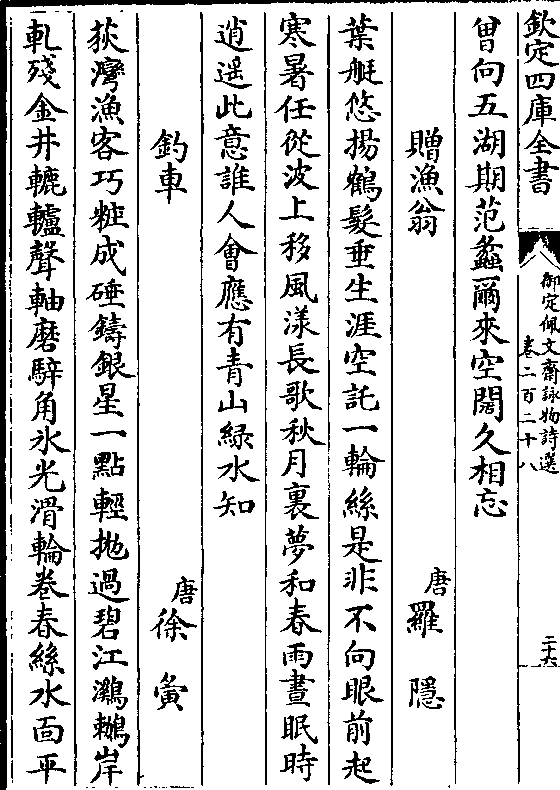 欽定四庫全書
御定佩文齋詠物詩選
卷二百二十八
二十六
曾向五湖期范蠡爾來空闊久相忘
贈漁翁 唐 羅隱
葉艇悠揚鶴髮垂生涯空託一輪絲是非不向眼前起
寒暑任從波上移風漾長歌秋月裏夢和春雨晝眠時
逍遥此意誰人會應有青山綠水知
釣車 唐 徐夤
荻灣漁客巧粧成硾鑄銀星一點輕抛過碧江鸂鶒岸
軋殘金井轆轤聲軸磨騂角氷光滑輪卷春絲水面平